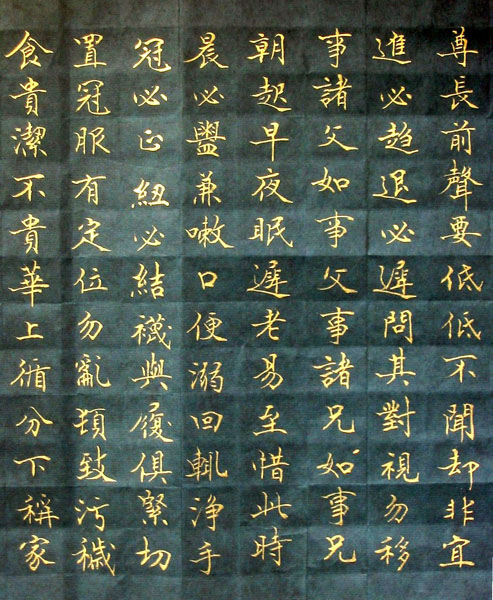 尊長前聲要低低不聞却非宜
進必趨退必遲問其對視勿移
事諸父如事父事諸兄如事兄
朝起早夜眠遲老易至惜此時
晨必盥兼嗽口便溺回輒淨手
冠必正紐必結襪與履俱緊切
置冠服有定位勿亂頓致污穢
食貴潔不貴華上循分下稱家